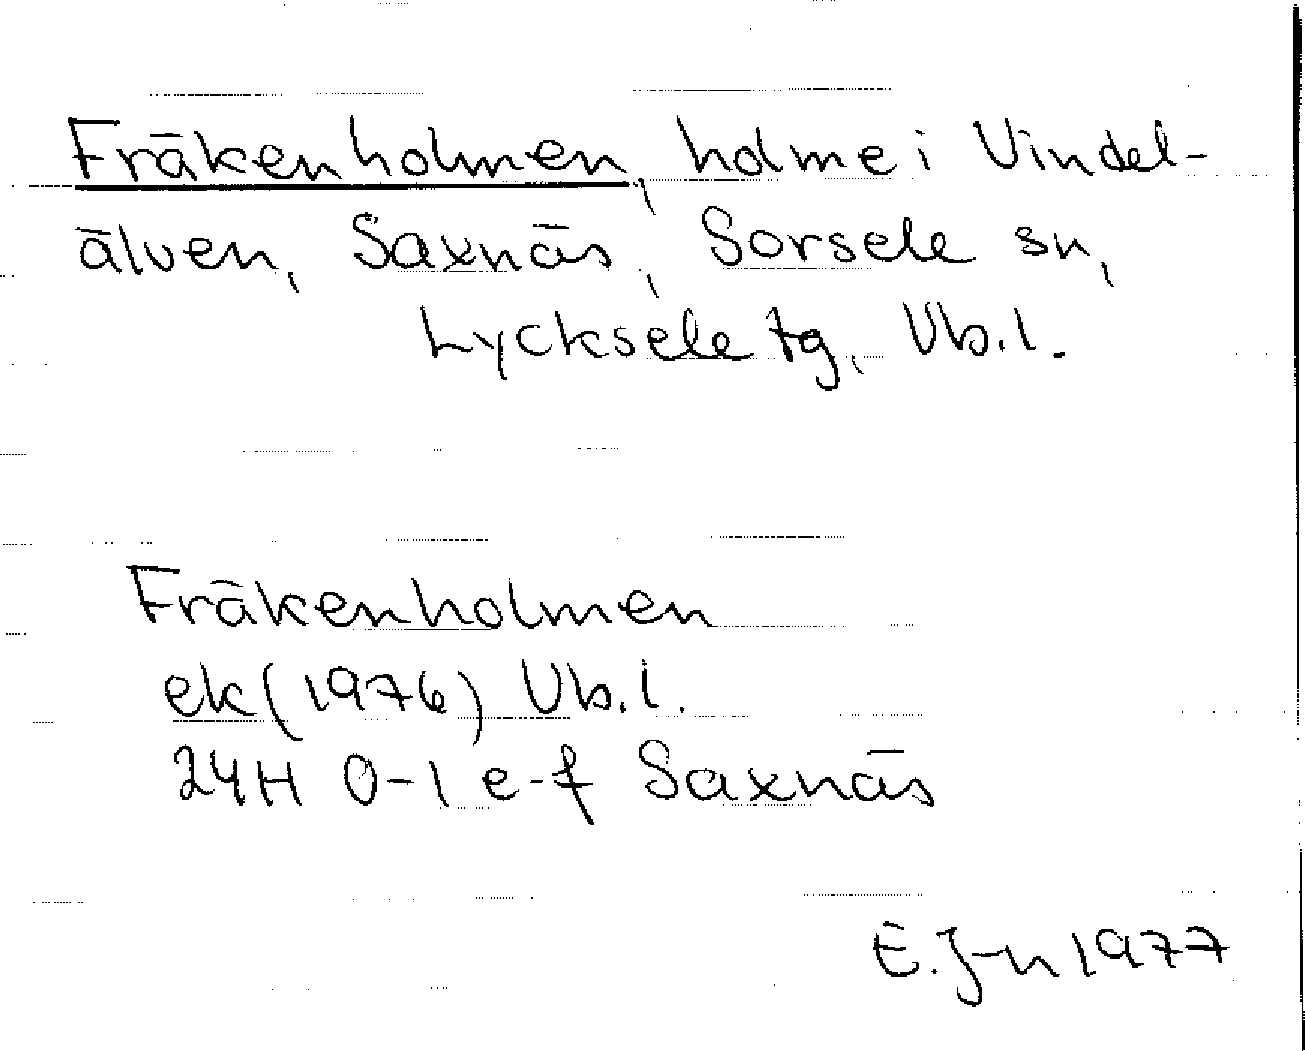 Fräkenholmen, holme i Vindel-
älven, Saxnäs, Sorsele sn,
Lycksele tg, Vb.l.
Fräkenholmen
ek (1976) Vb.l.
24H 0-1 e-f Saxnäs
E. J-n 1977